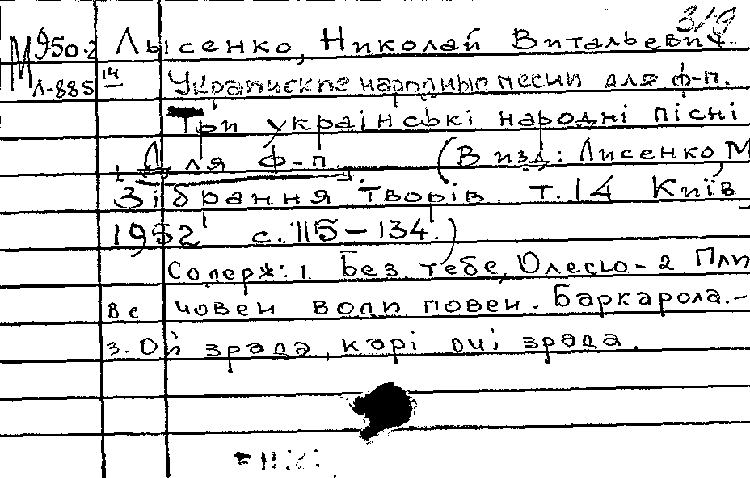 319
М 950.2 Лысенко, Николай Витальевич.
Л-885 14 Украинские народные песни для ф-п.
Три українські народні пісні
[Для ф-п.] (В изд.: Лисенко, М
Зібрання творів т. 14 Київ,
1952 с. 115-134.)
Содерж: 1. Без тебе, Олесю - 2 Пли
ве човен води повен. Баркарола. -
3. Ой зрада, карі очі зрада.